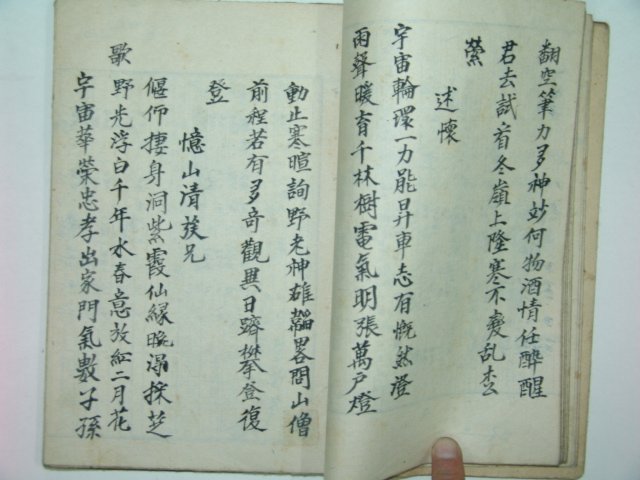 翻空筆力多神妙何物酒情任醉醒
君去試看冬嶺上隆寒不褻乱松
縈
述懷
宇宙輪環一力能昇車志有慨然澄
雨聲暖育千林樹電氣明張萬戶燈
動止寒暄詢野老神雄韜畧問山僧
前程若有多奇觀異日躋攀登復
登
憶山清族兄
偃仰捿身洞紫霞仙緣晩溺採芝
歌野光浮白千年水春意放紅二月花
宇宙華榮忠孝出家門氣數子孫